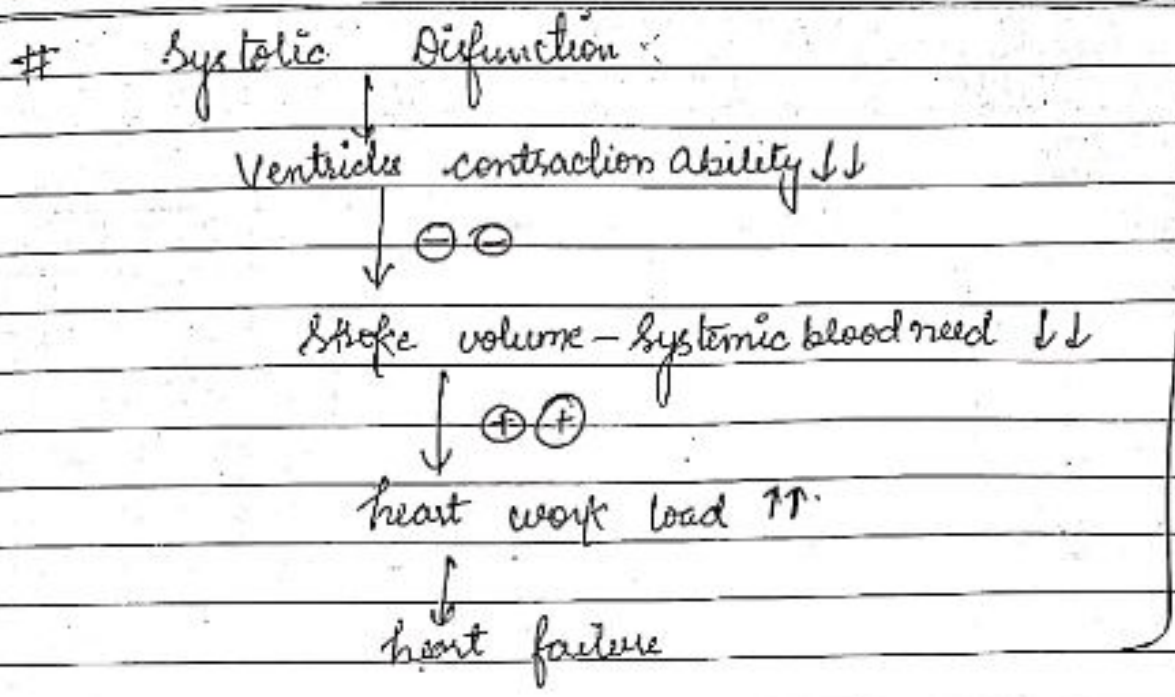 # Systolic Disfunction :
↓
Ventricles contraction ability ↓↓
↓ ⊖ ⊖
Stroke volume – Systemic blood need ↓↓
↓ ⊕ ⊕
heart work load ↑↑.
↓
heart failure